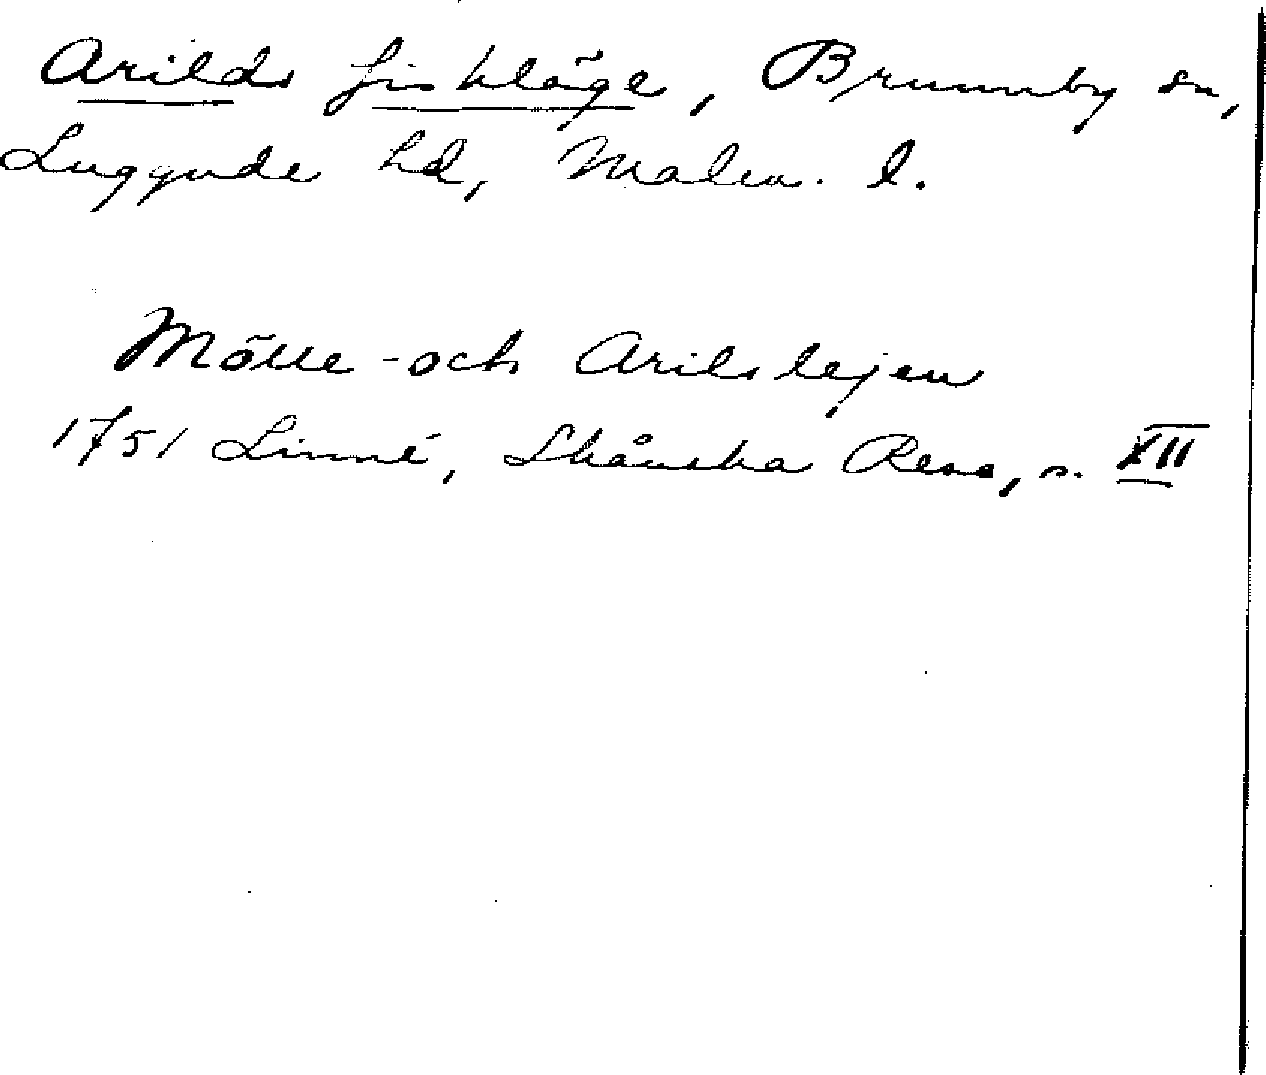 Arilds fiskläge, Brunnby sn,
Luggude hd, Malm. l.
Mölle- och Arilslejen
1751 Linné, Skånska Resa, s. XII